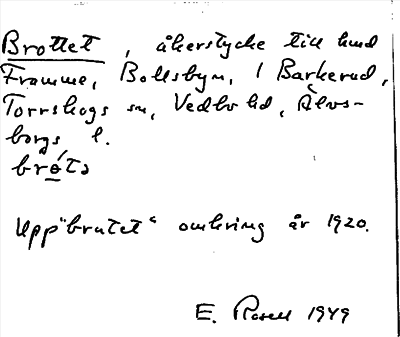 Brottet, åkerstycke till hmd
Framme, Bollsbyn, 1 Barkerud,
Torrskogs sn, Vedbo hd, Älvs-
borgs l.
Upp"brutet" omkring år 1920.
E. Rosell 1949